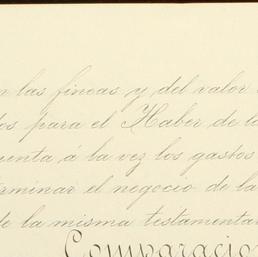 n las fincas y del valor
os para el Haber de
enta á la vez los gastos
rminar el negocio de la
de la misma testamentar
Comparacio